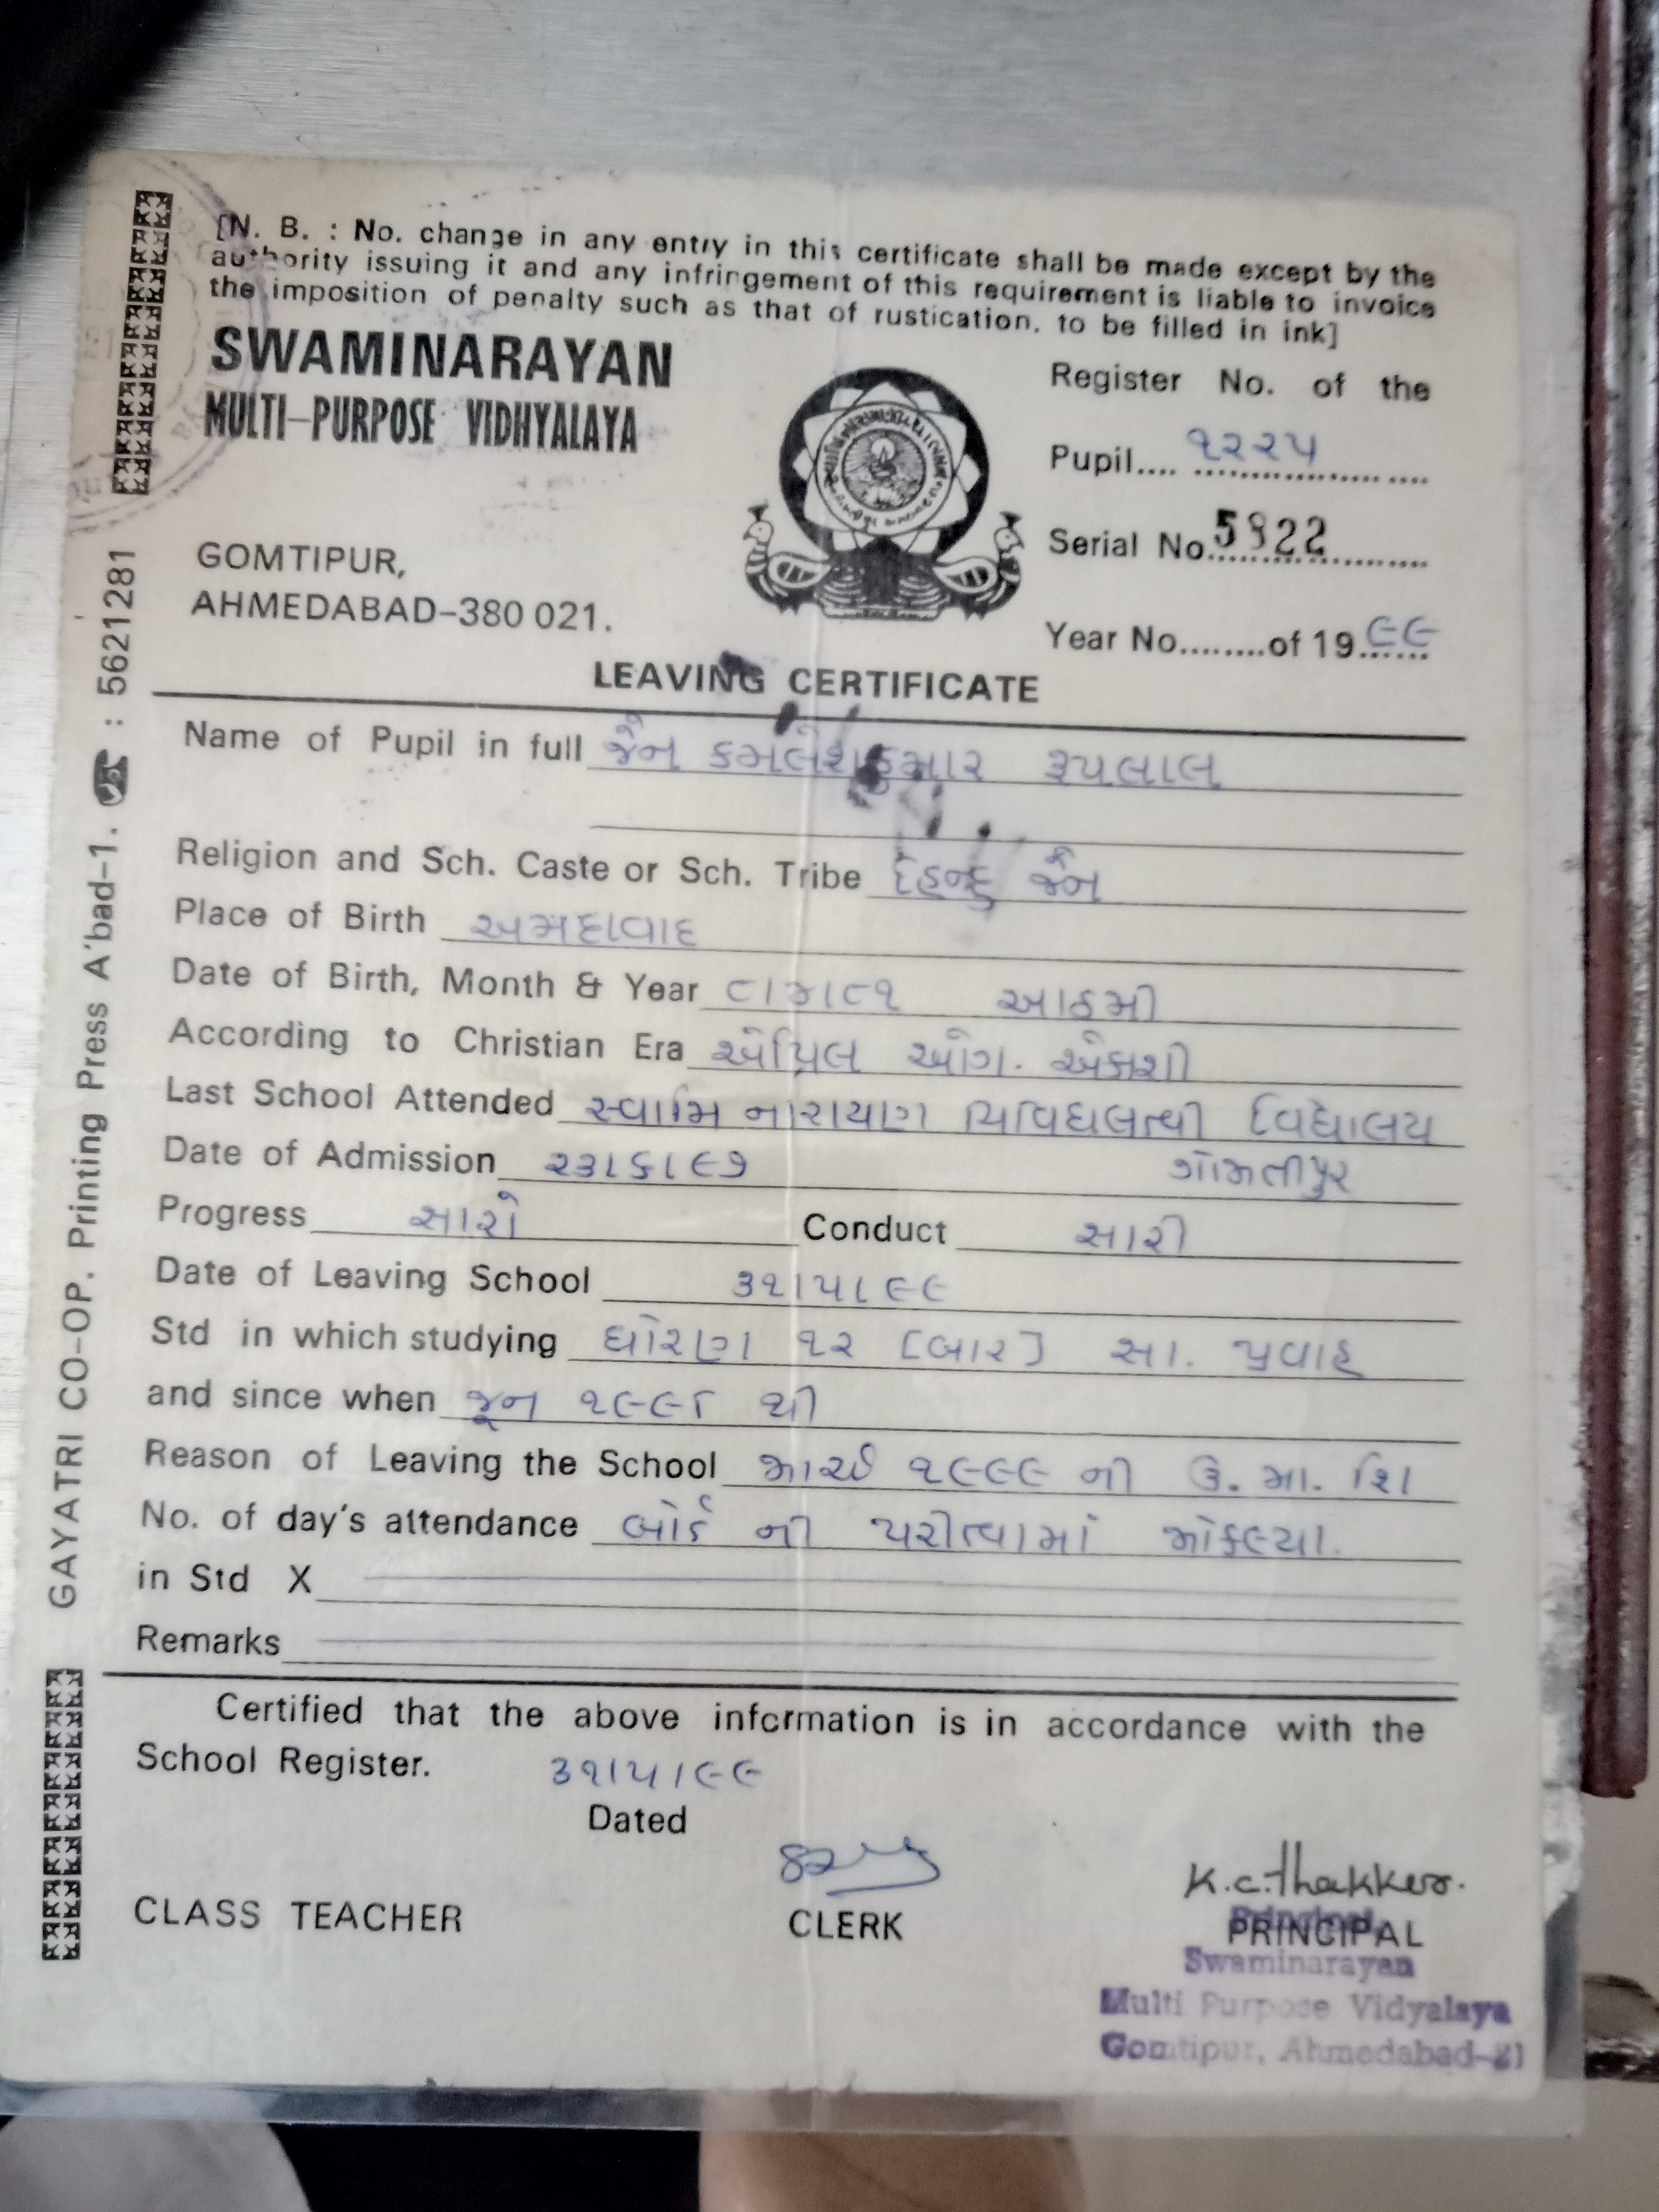 [N. B. : No. change in any entry in this certificate shall be made except by the
authority issuing it and any infringement of this requirement is liable to invoice
the imposition of penalty such as that of rustication. to be filled in ink]
SWAMINARAYAN
MULTI-PURPOSE VIDHYALAYA
GOMTIPUR,
AHMEDABAD-380 021.
Register No. of the
Pupil.... ૧૨૨૫
Serial No. 5922
Year No........of 19 ૯૯
LEAVING CERTIFICATE
Name of Pupil in full જૈન કમલેશકુમાર રૂપલાલ
Religion and Sch. Caste or Sch. Tribe હિન્દુ જૈન
Place of Birth અમદાવાદ
Date of Birth, Month & Year ૮।૪।૮૧ આઠમી
According to Christian Era એપ્રિલ ઓગ. એકાશી
Last School Attended સ્વામિ નારાયણ વિવિધલક્ષી વિદ્યાલય
ગોમતીપુર
Date of Admission ૨૩।૬।૯૭
Progress સારો Conduct સારી
Date of Leaving School ૩૧।૫।૯૯
Std in which studying ધોરણ ૧૨ [બાર] સા. પ્રવાહ
and since when જૂન ૧૯૯૮ થી
Reason of Leaving the School માર્ચ ૧૯૯૯ ની ઉ. મા. શિ
No. of day's attendance બોર્ડ ની પરીક્ષામાં મોકલ્યા.
in Std X
Remarks
Certified that the above information is in accordance with the
School Register. ૩૧।૫।૯૯
Dated
CLASS TEACHER
CLERK
K.C.Thakker.
PRINCIPAL
Principal,
Swaminarayan
Multi Purpose Vidyalaya
Gomtipur, Ahmedabad-21
GAYATRI CO-OP. Printing Press A'bad-1. ☎ : 5621281